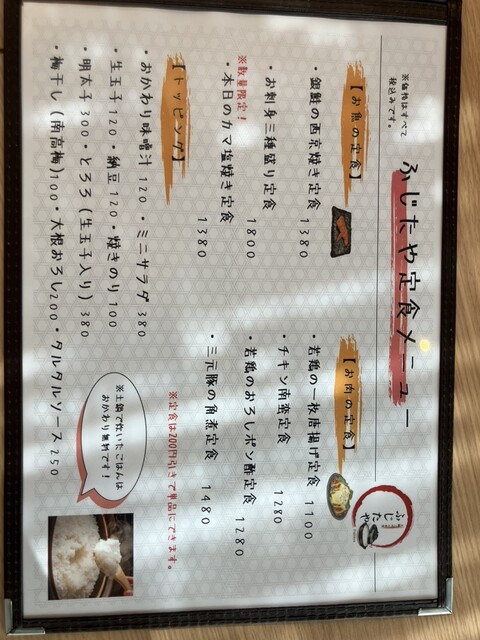 ※価格はすべて
税込みです。
ふじたや定食メニュー
ふじたや
【お魚の定食】
・銀鮭の西京焼き定食 1380
・お刺身三種盛り定食 1800
※数量限定!
・本日のカマ塩焼き定食 1380
【お肉の定食】
・若鶏の一枚唐揚げ定食 1100
・チキン南蛮定食 1280
・若鶏のおろしポン酢定食 1280
・三元豚の角煮定食 1480
※定食は200円引きで単品にできます。
【トッピング】
・おかわり味噌汁 120 ・ミニサラダ 380
・生玉子 120 ・納豆 120 ・焼きのり 100
・明太子 300 ・とろろ (生玉子入り) 380
・梅干し (南高梅) 100 ・大根おろし 200 ・タルタルソース 250
※土鍋で炊いたごはんは
おかわり無料です!